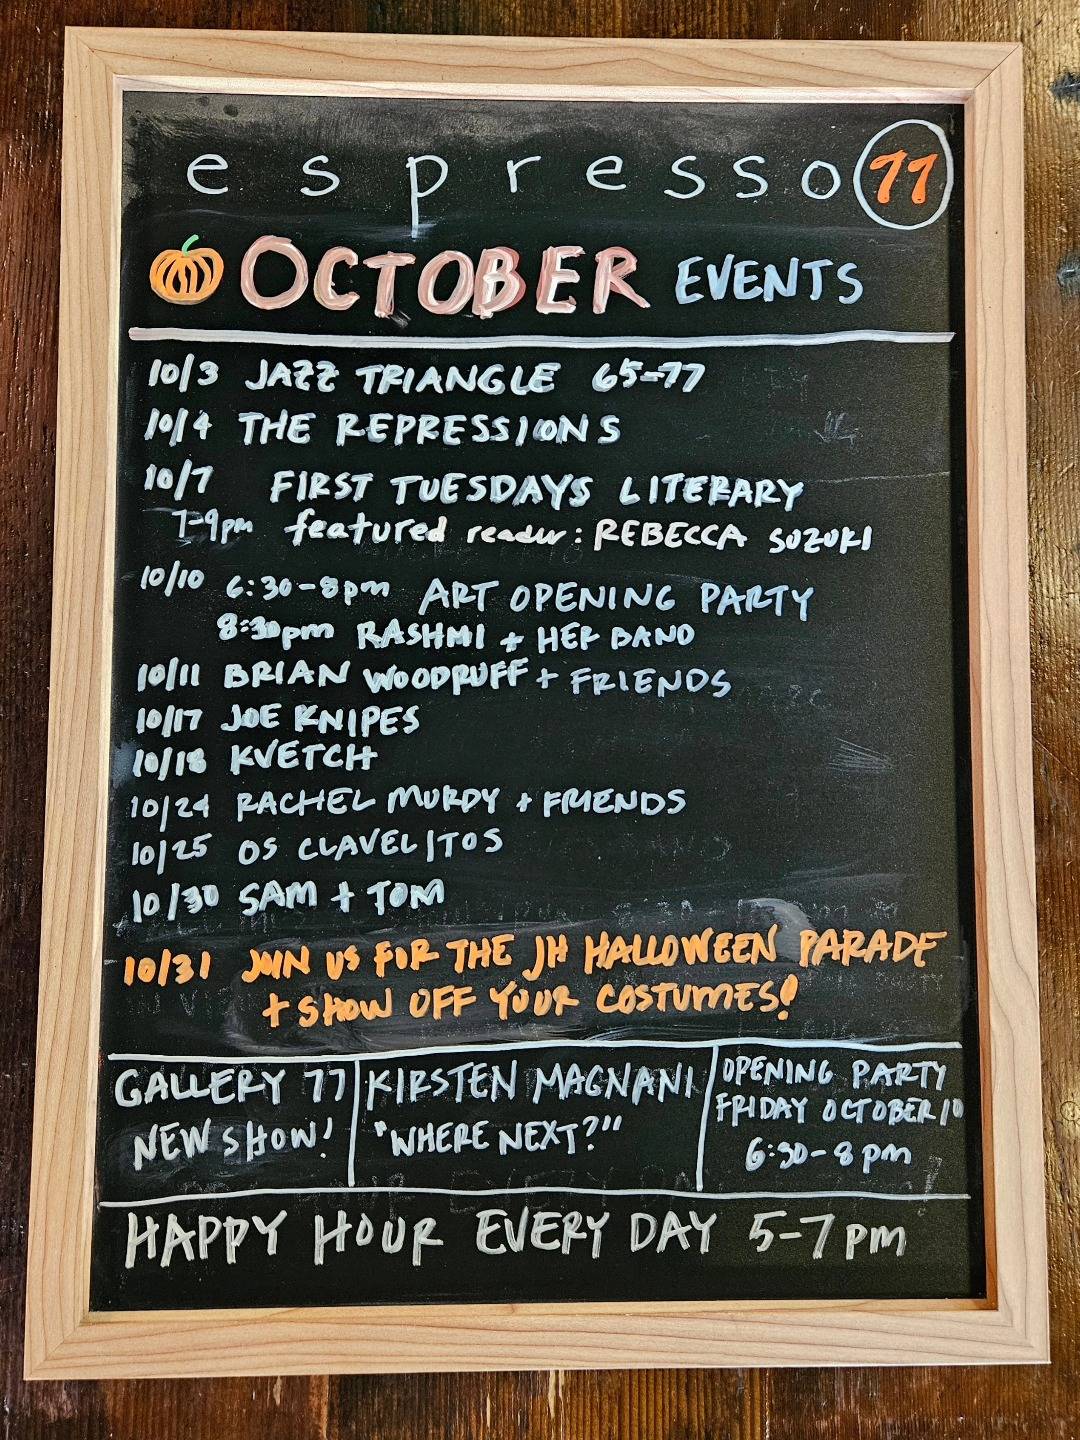 espresso 77
OCTOBER EVENTS
10/3 JAZZ TRIANGLE 65-77
10/4 THE REPRESSIONS
10/7 FIRST TUESDAYS LITERARY
7-9pm featured reader: REBECCA SUZUKI
10/10 6:30-8pm ART OPENING PARTY
8:30pm RASHMI + HER BAND
10/11 BRIAN WOODRUFF + FRIENDS
10/17 JOE KNIPES
10/18 KVETCH
10/24 RACHEL MURDY + FRIENDS
10/25 OS CLAVELITOS
10/30 SAM + TOM
10/31 JOIN US FOR THE JH HALLOWEEN PARADE
+ SHOW OFF YOUR COSTUMES!
GALLERY 77
NEW SHOW!
KIRSTEN MAGNANI
"WHERE NEXT?"
OPENING PARTY
FRIDAY OCTOBER 10
6:30-8pm
HAPPY HOUR EVERY DAY 5-7pm